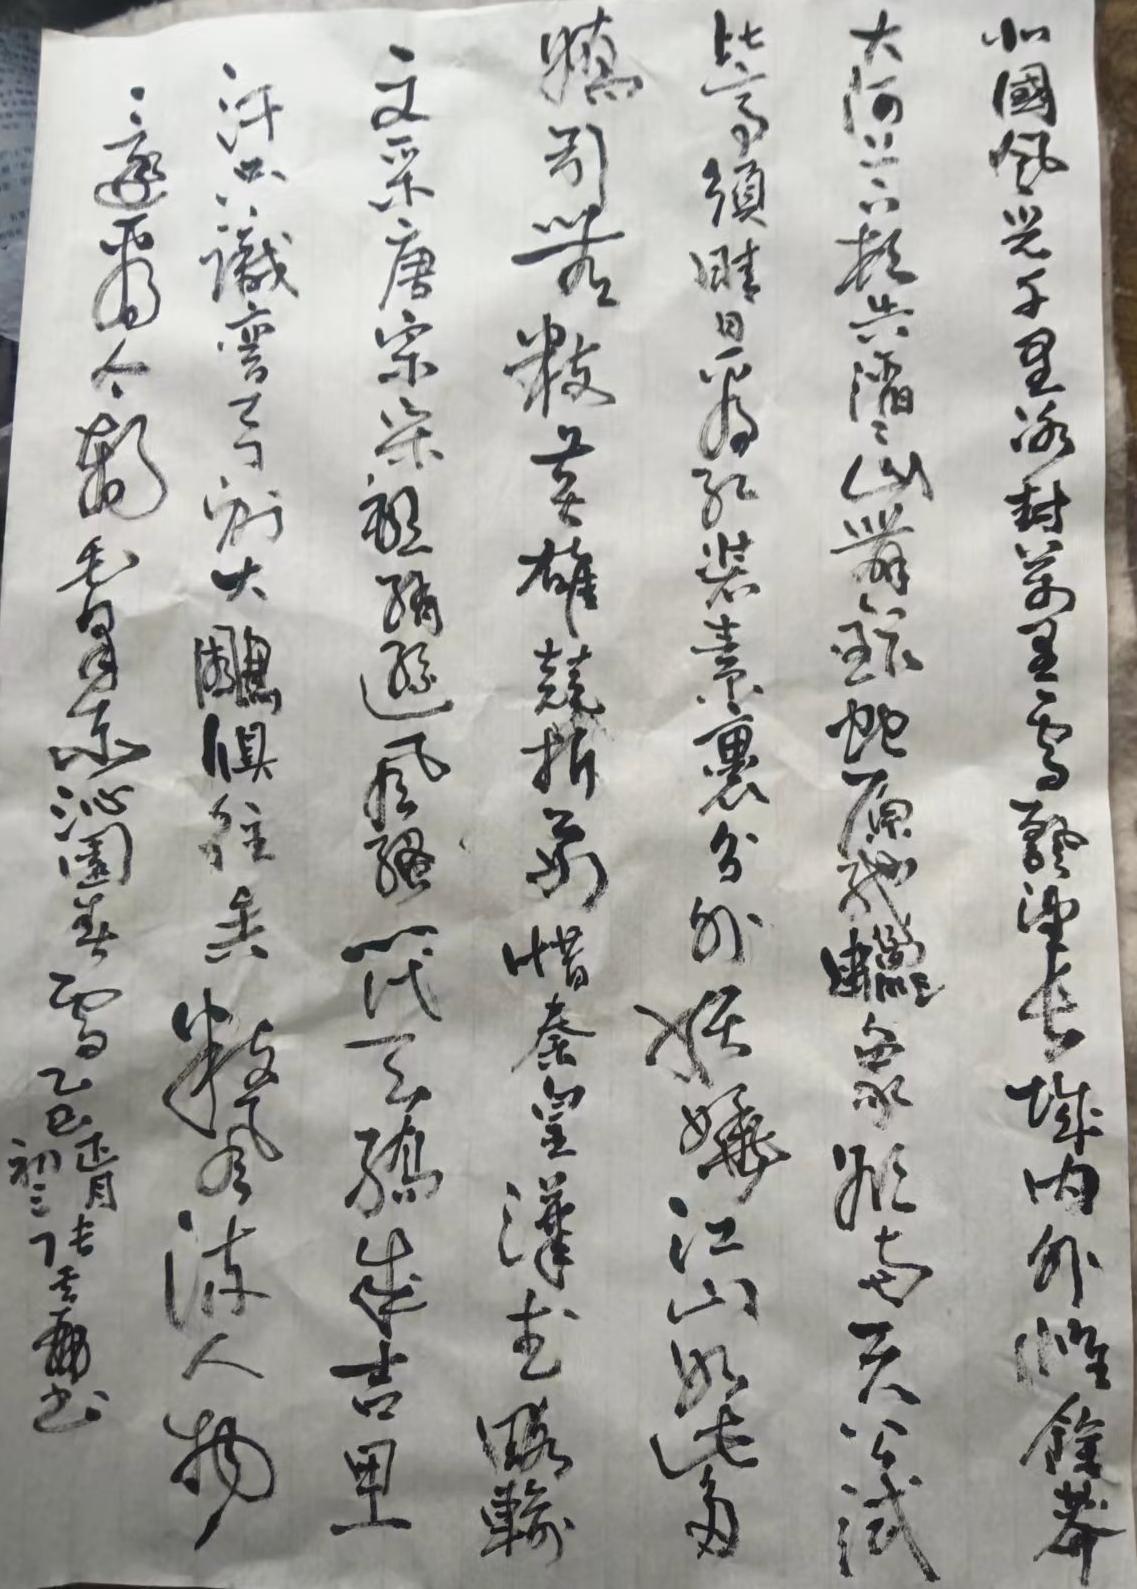 北國風光千里冰封萬里雪飄望長城内外惟餘莽
大河上下頓失滔〻山舞銀蛇原馳蠟象欲与天公試
比高須晴日看紅裝素裹分外妖嬈江山如此多
嬌引無數英雄競折腰惜秦皇漢武略輸
文采唐宗宋祖稍遜風騷一代天驕成吉里
汗只識彎弓射大鵰俱往矣數風流人物
還看今朝毛澤東沁園春雪乙巳正月
初三張書